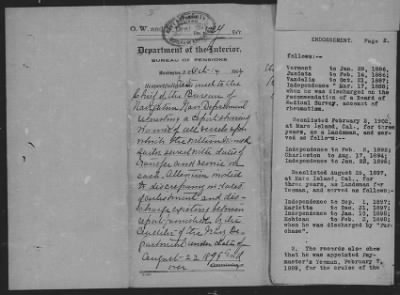 O. W. and
Department of the Interior,
BUREAU OF PENSIONS
Washington, D.C. Oct. 14
Respectfully
Chief of the Bureau of
Navigation Navy Department
requesting a report showing
names of all vessels upon
which the
sailor served with dates of
transfer and service on
each. Attention invited
to discrepancy in dates
of enlistment and dis-
charge existing between
report furnished by the
Auditor of the Navy De-
partment under date of
August 22 1898 and
over
ENDORSEMENT. Page 2.
follows:--
Vermont to Jan. 28, 1886,
Juniata to Feb. 14, 1886;
Vandalia to Oct. 21, 1887;
Independence " Mar. 17, 1888;
when he was discharged on the
recommendation of a Board of
Medical Survey, account of
rheumatism.
Reenlisted February
at Mare Island, Cal., for three
years, as a Landsman, and serv-
ed as follows:--
Independence to Feb. 8, 1892;
Charleston to Aug. 17, 1894;
Independence to
Reenlisted August 26, 1897,
at Mare Island, Cal., for
three years, as Landsman for
Yeoman, and served as follows:-
Independence to Sep. 1, 1897;
Marietta to Dec. 31, 1897;
Independence to Jan. 10, 1898;
Mohican to Feb. 3, 1898;
when he was discharged by "Pur-
chase".
2. The records also show
that he was appointed Pay-
master's Yeoman, February 7,
1899, for the cruise of the